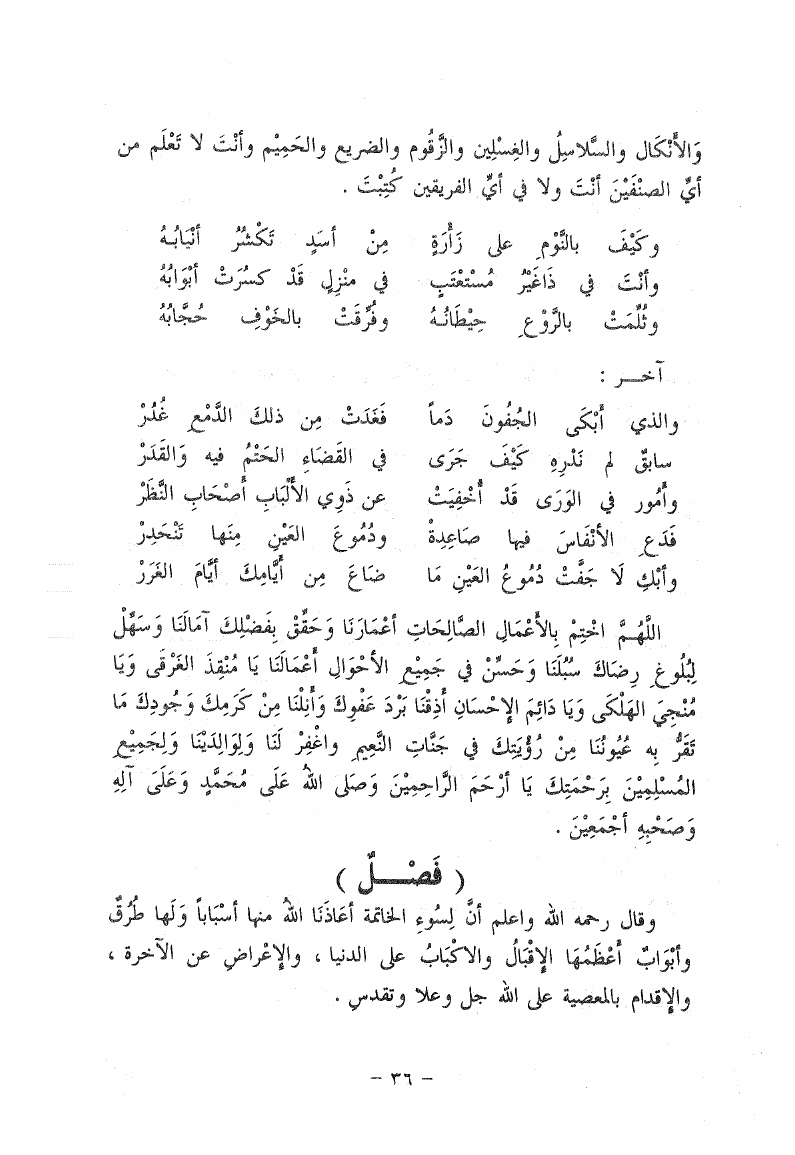 وَالأَنْكَال والسَّلاسِلُ والغِسْلِين والزَّقُوم والضريع والحَمِيْم وأنْتَ لا تَعْلَم من
أيِّ الصنْفَيْنَ أنْتَ ولا في أيِّ الفريقين كُتِبْتَ .
وكَيْفَ بالنَّوْمِ على زَأْرَةٍ مِنْ أسَدٍ تَكْشُرُ أنْيَابُهُ
وأنْتَ في ذَاغَيْرُ مُسْتَعْتَبٍ في منْزِلٍ قَدْ كسرَتْ أبْوَابُهُ
وثُلِّمَتْ بالرَّوْعِ حِيْطَانُهُ وفُرِّقَتْ بالخَوْفِ حُجَّابُهُ
آخر :
والذي أَبْكَى الجُفُونَ دَماً فَغَدَتْ مِن ذلكَ الدَّمْعِ غُدُرْ
سابقٌ لم نَدْرِهِ كَيْفَ جَرَى في القَضَاءِ الحَتْمُ فيه وَالقَدَرْ
وأُمُور في الوَرَى قَدْ أُخْفِيَتْ عن ذَوِي الأَلْبَابِ أَصْحَابِ النَّظَرْ
فَدَعِ الأنْفَاسَ فيها صَاعِدِةْ ودُمُوعَ العَيْنِ مِنَها تَنْحَدِرْ
وأبْكِ لَا جَفَّتْ دُمُوعُ العَيْنِ مَا ضَاعَ مِن أيَّامِكَ أيَّامَ الغَرَرْ
اللَّهُمَّ اخْتِمْ بِالأَعْمَالِ الصَّالِحَاتِ أعْمَارَنَا وَحَقِّقْ بِفَضْلِكَ آمَالَنَا وَسَهِّلْ
لِبُلُوغِ رِضَاكَ سُبُلَنَا وَحَسِّنْ في جَمِيْعِ الأحْوَالِ أعْمَالَنَا يَا مُنْقِذَ الغَرْقَى وَيَا
مُنْجِيَ الهَلْكَى وَيَا دَائِمَ الإحْسَانِ أَذِقْنَا بَرْدَ عَفْوِكَ وَأَنِلْنَا مِنْ كَرَمِكَ وَجُودِكَ مَا
تَقَرُّ بِه عُيُونُنَا مِنْ رُؤْيَتِكَ في جَنَّاتِ النَّعِيمِ واغْفِرْ لَنَا وَلِوَالِدَيْنَا وَلِجَمِيْعِ
المُسْلِمِيْنَ بِرَحْمَتِكَ يَا أرْحَمَ الرَّاحِمِيْنَ وَصَلى اللهُ عَلَى مُحَمَّدٍ وَعَلَىَ آلِهِ
وَصَحْبِهِ أجْمَعِيْنَ .
( فَصْـــلٌ )
وقال رحمه الله واعلم أنَّ لِسُوءِ الخاتمة أعَاذَنَا اللهُ منها أسْبَاباً وَلَها طُرُقٌ
وأبْوَابٌ أعْظَمُهَا الإقْبَالُ والاكْبَابُ على الدنيا ، والإعْراضِ عن الآخرة ،
والإقدام بالمعصية على الله جل وعلا وتقدس .
– ٣٦ –